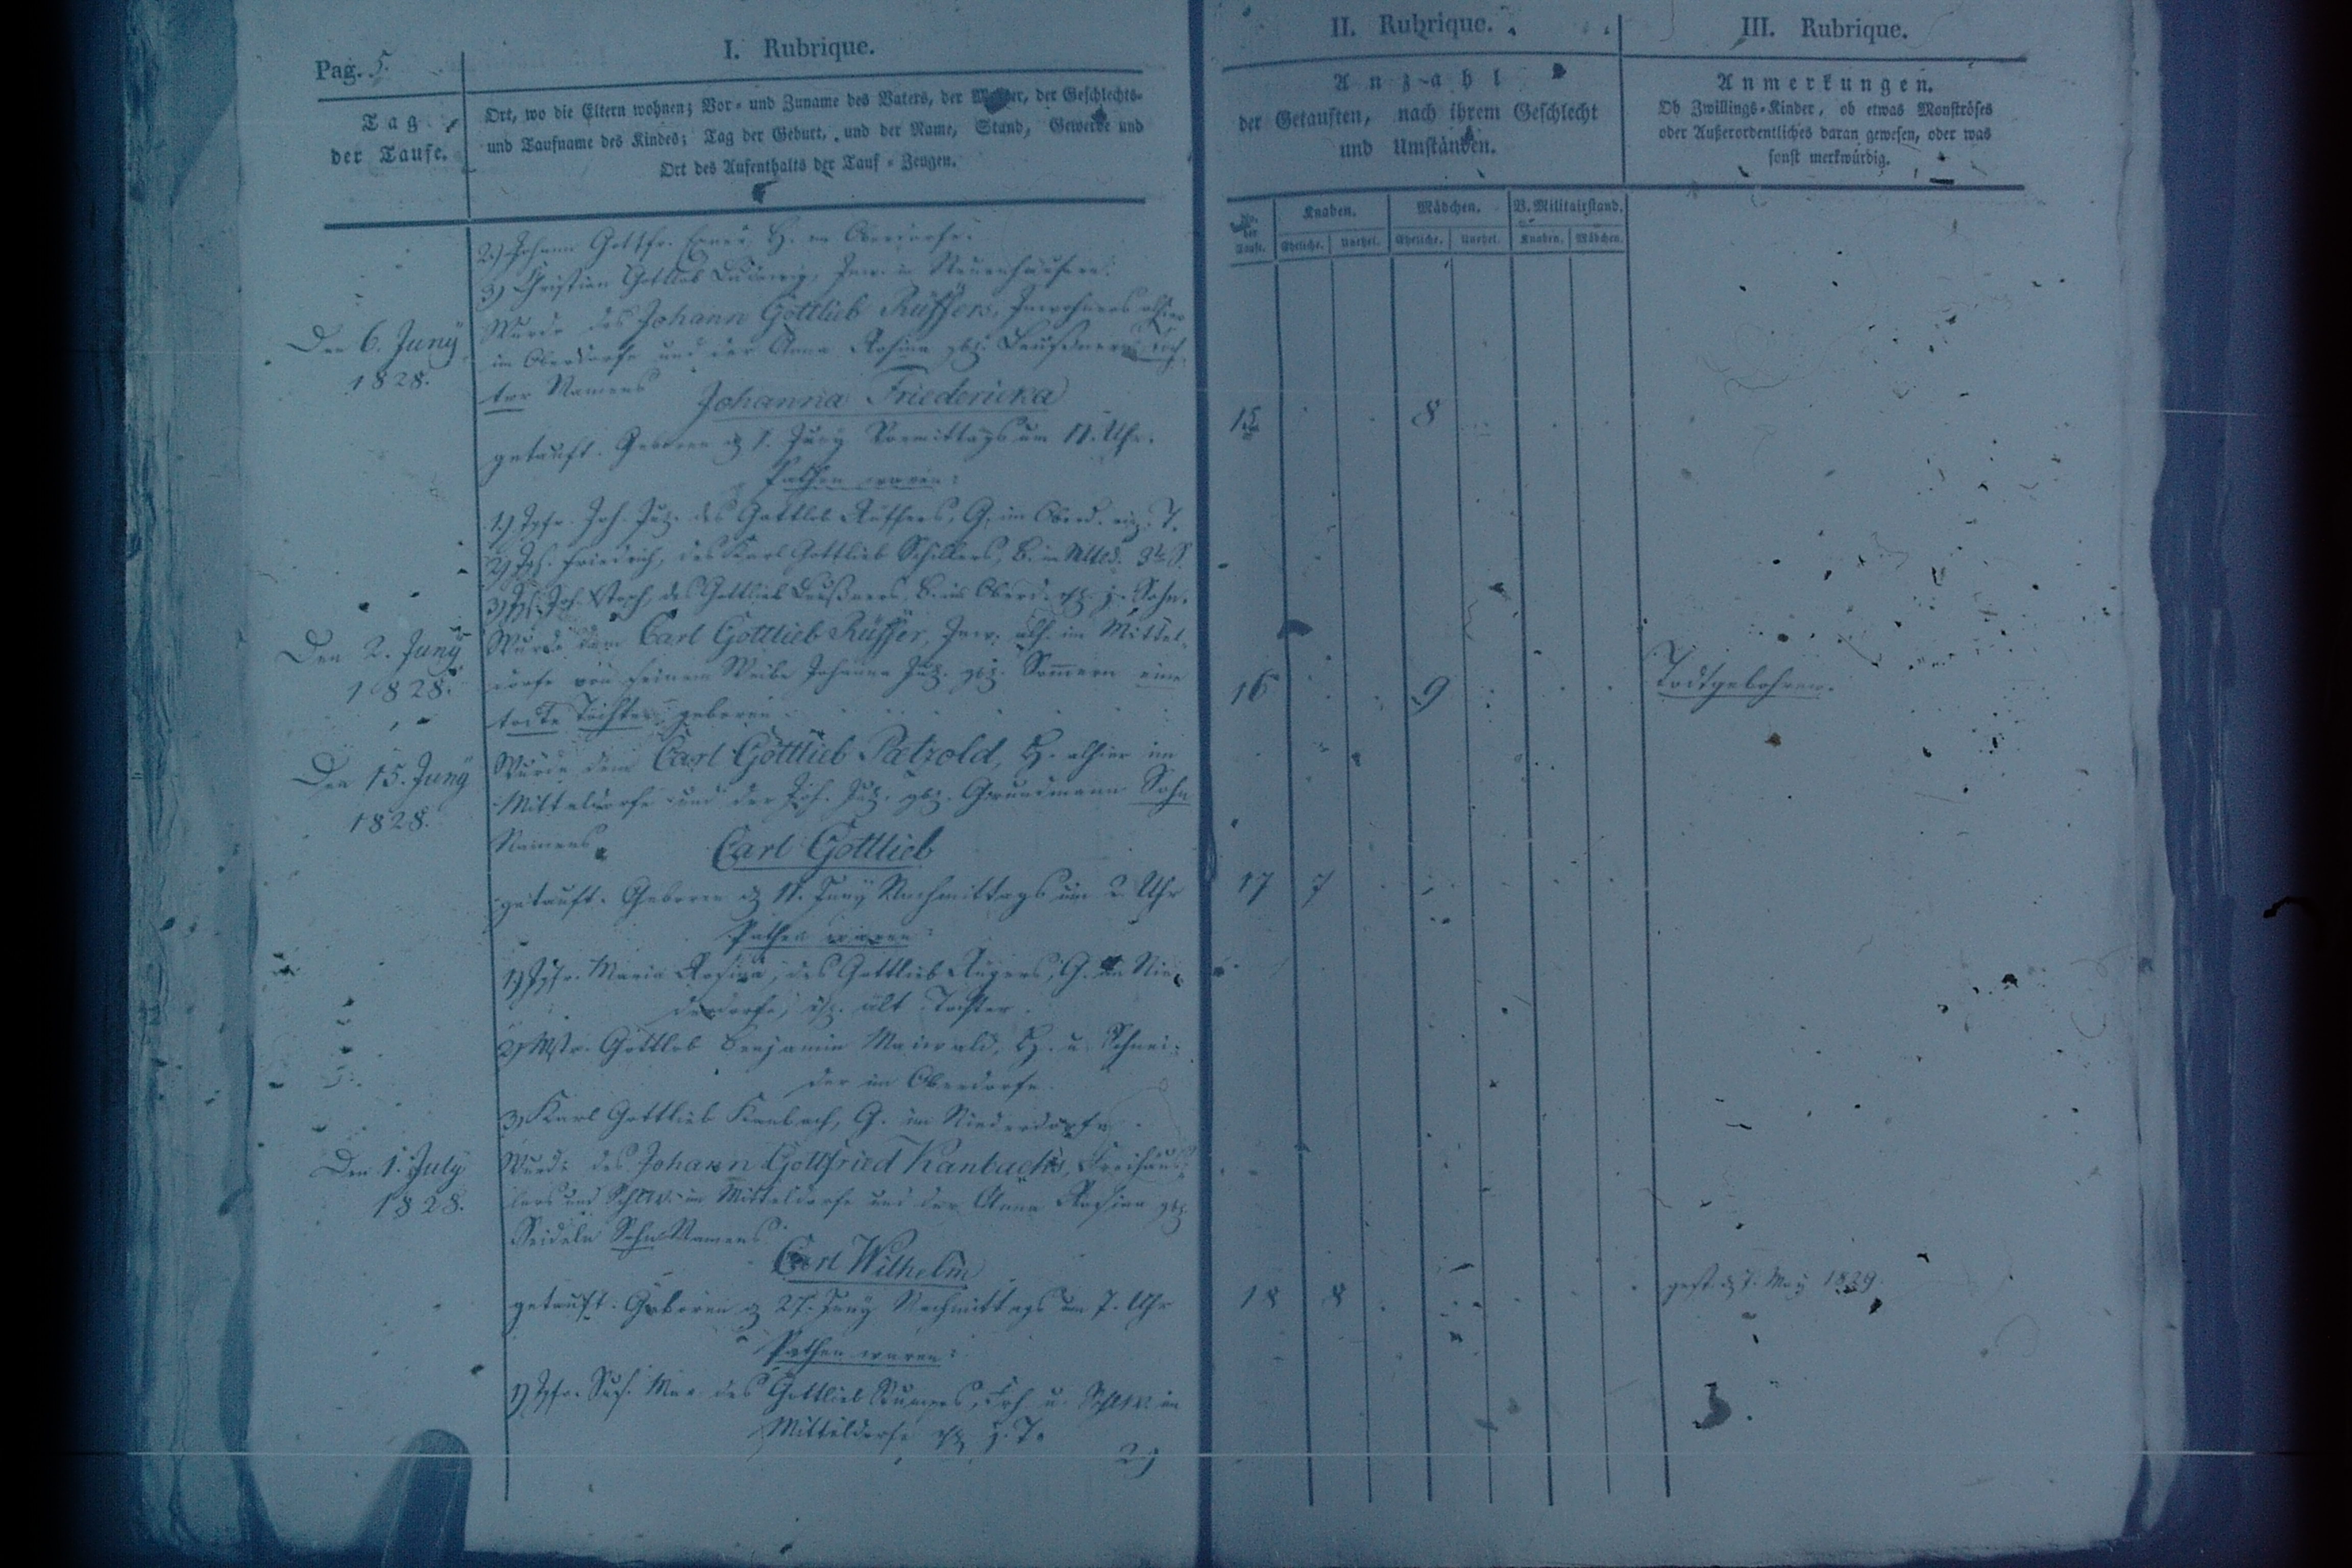 Pag. 5.
I. Rubrique.
Tag
der Taufe.
Ort, wo die Eltern wohnen; Vor- und Zuname des Vaters, der Mutter, der Geschlechts-
und Taufname des Kindes; Tag der Geburt, und der Name, Stand, Gewerbe und
Ort des Aufenthalts der Tauf-Zeugen.
2.) Johann Gottfr. H. im Oberdorfe.
3.) Christian Gottlieb Ludewig, Inw. in Neuenhäusern.
Den 6. Juny
1828.
Wurde des Johann Gottlieb Rüffers, Inwohners alhier
im Oberdorfe und der Anna Rosina gb. Toch-
ter Namens Johanna Friedericka
getauft. Geboren d. 1. Juny Vormittags um 11. Uhr.
Pathen waren:
1.) Igfr. Joh. des Gottlieb Rüffers, G. im Oberd. T.
2) Joh. Friedrich, des Karl Gottlieb Schillers, B. im S.
3) des Gottlieb B. im Oberd. Sohn.
Den 2. Juny
1828.
Wurde dem Carl Gottlieb Rüffer, Inw. alh. im Mittel-
dorfe von seinem Weibe Johanna gb. Sommern eine
todte Tochter geboren.
Den 15. Juny
1828.
Wurde dem Carl Gottlieb Paetzold, H. alhier im
Mitteldorfe und der Joh. gb. Grundmann Sohn
Namens Carl Gottlieb
getauft. Geboren d. 11. Juny Nachmittags um 2. Uhr
Pathen waren:
1.) Igfr. Maria Rosina, des Gottlieb Rügers, G. im Nie-
derdorfe, ält. Tochter.
2) Mstr. Gottlob Benjamin Maiwald, H. u. Schnei-
der im Oberdorfe.
3) Karl Gottlieb Kanbach, G. im Niederdorfe.
Den 1. July
1828.
Wurde des Johann Gottfried Kanbachs, Freihäus-
lers und im Mitteldorfe und der Anna Rosina gb.
Seideln Sohn Namens
Carl Wilhelm
getauft. Geboren d. 27. Juny Nachmittags um 7. Uhr
Pathen waren:
1) Igfr. Sus. Mar. des Gottlieb u. im
Mitteldorfe T.
2)
II. Rubrique.
Anzahl
der Getauften, nach ihrem Geschlecht
und Umständen.
No. der Taufe.
Knaben.
Mädchen.
V. Militairstand.
Eheliche. Unehel. Eheliche. Unehel. Knaben. Mädchen.
15 8
16 9
17 7
18 8
III. Rubrique.
Anmerkungen.
Ob Zwillings-Kinder, ob etwas Monströses
oder Außerordentliches daran gewesen, oder was
sonst merkwürdig.
Todtgebohren.
gest. d. 7. May 1829.